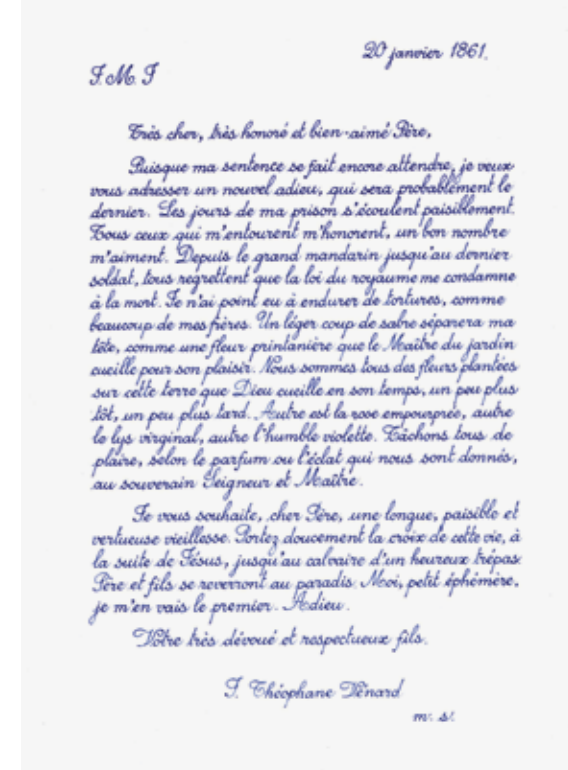 20 janvier 1861.
J. M. J
Très cher, très honoré et bien-aimé Père,
Puisque ma sentence se fait encore attendre, je veux
vous adresser un nouvel adieu, qui sera probablement le
dernier. Les jours de ma prison s'écoulent paisiblement.
Tous ceux qui m'entourent m'honorent, un bon nombre
m'aiment. Depuis le grand mandarin jusqu'au dernier
soldat, tous regrettent que la loi du royaume me condamne
à la mort. Je n'ai point eu à endurer de tortures, comme
beaucoup de mes frères. Un léger coup de sabre séparera ma
tête, comme une fleur printanière que le Maître du jardin
cueille pour son plaisir. Nous sommes tous des fleurs plantées
sur cette terre que Dieu cueille en son temps, un peu plus
tôt, un peu plus tard. Autre est la rose empourprée, autre
le lys virginal, autre l'humble violette. Tâchons tous de
plaire, selon le parfum ou l'éclat qui nous sont donnés,
au souverain Seigneur et Maître.
Je vous souhaite, cher Père, une longue, paisible et
vertueuse vieillesse. Portez doucement la croix de cette vie, à
la suite de Jésus, jusqu'au calvaire d'un heureux trépas.
Père et fils se reverront au paradis. Moi, petit éphémère,
je m'en vais le premier. Adieu.
Votre très dévoué et respectueux fils.
J. Théophane Vénard
m. s.